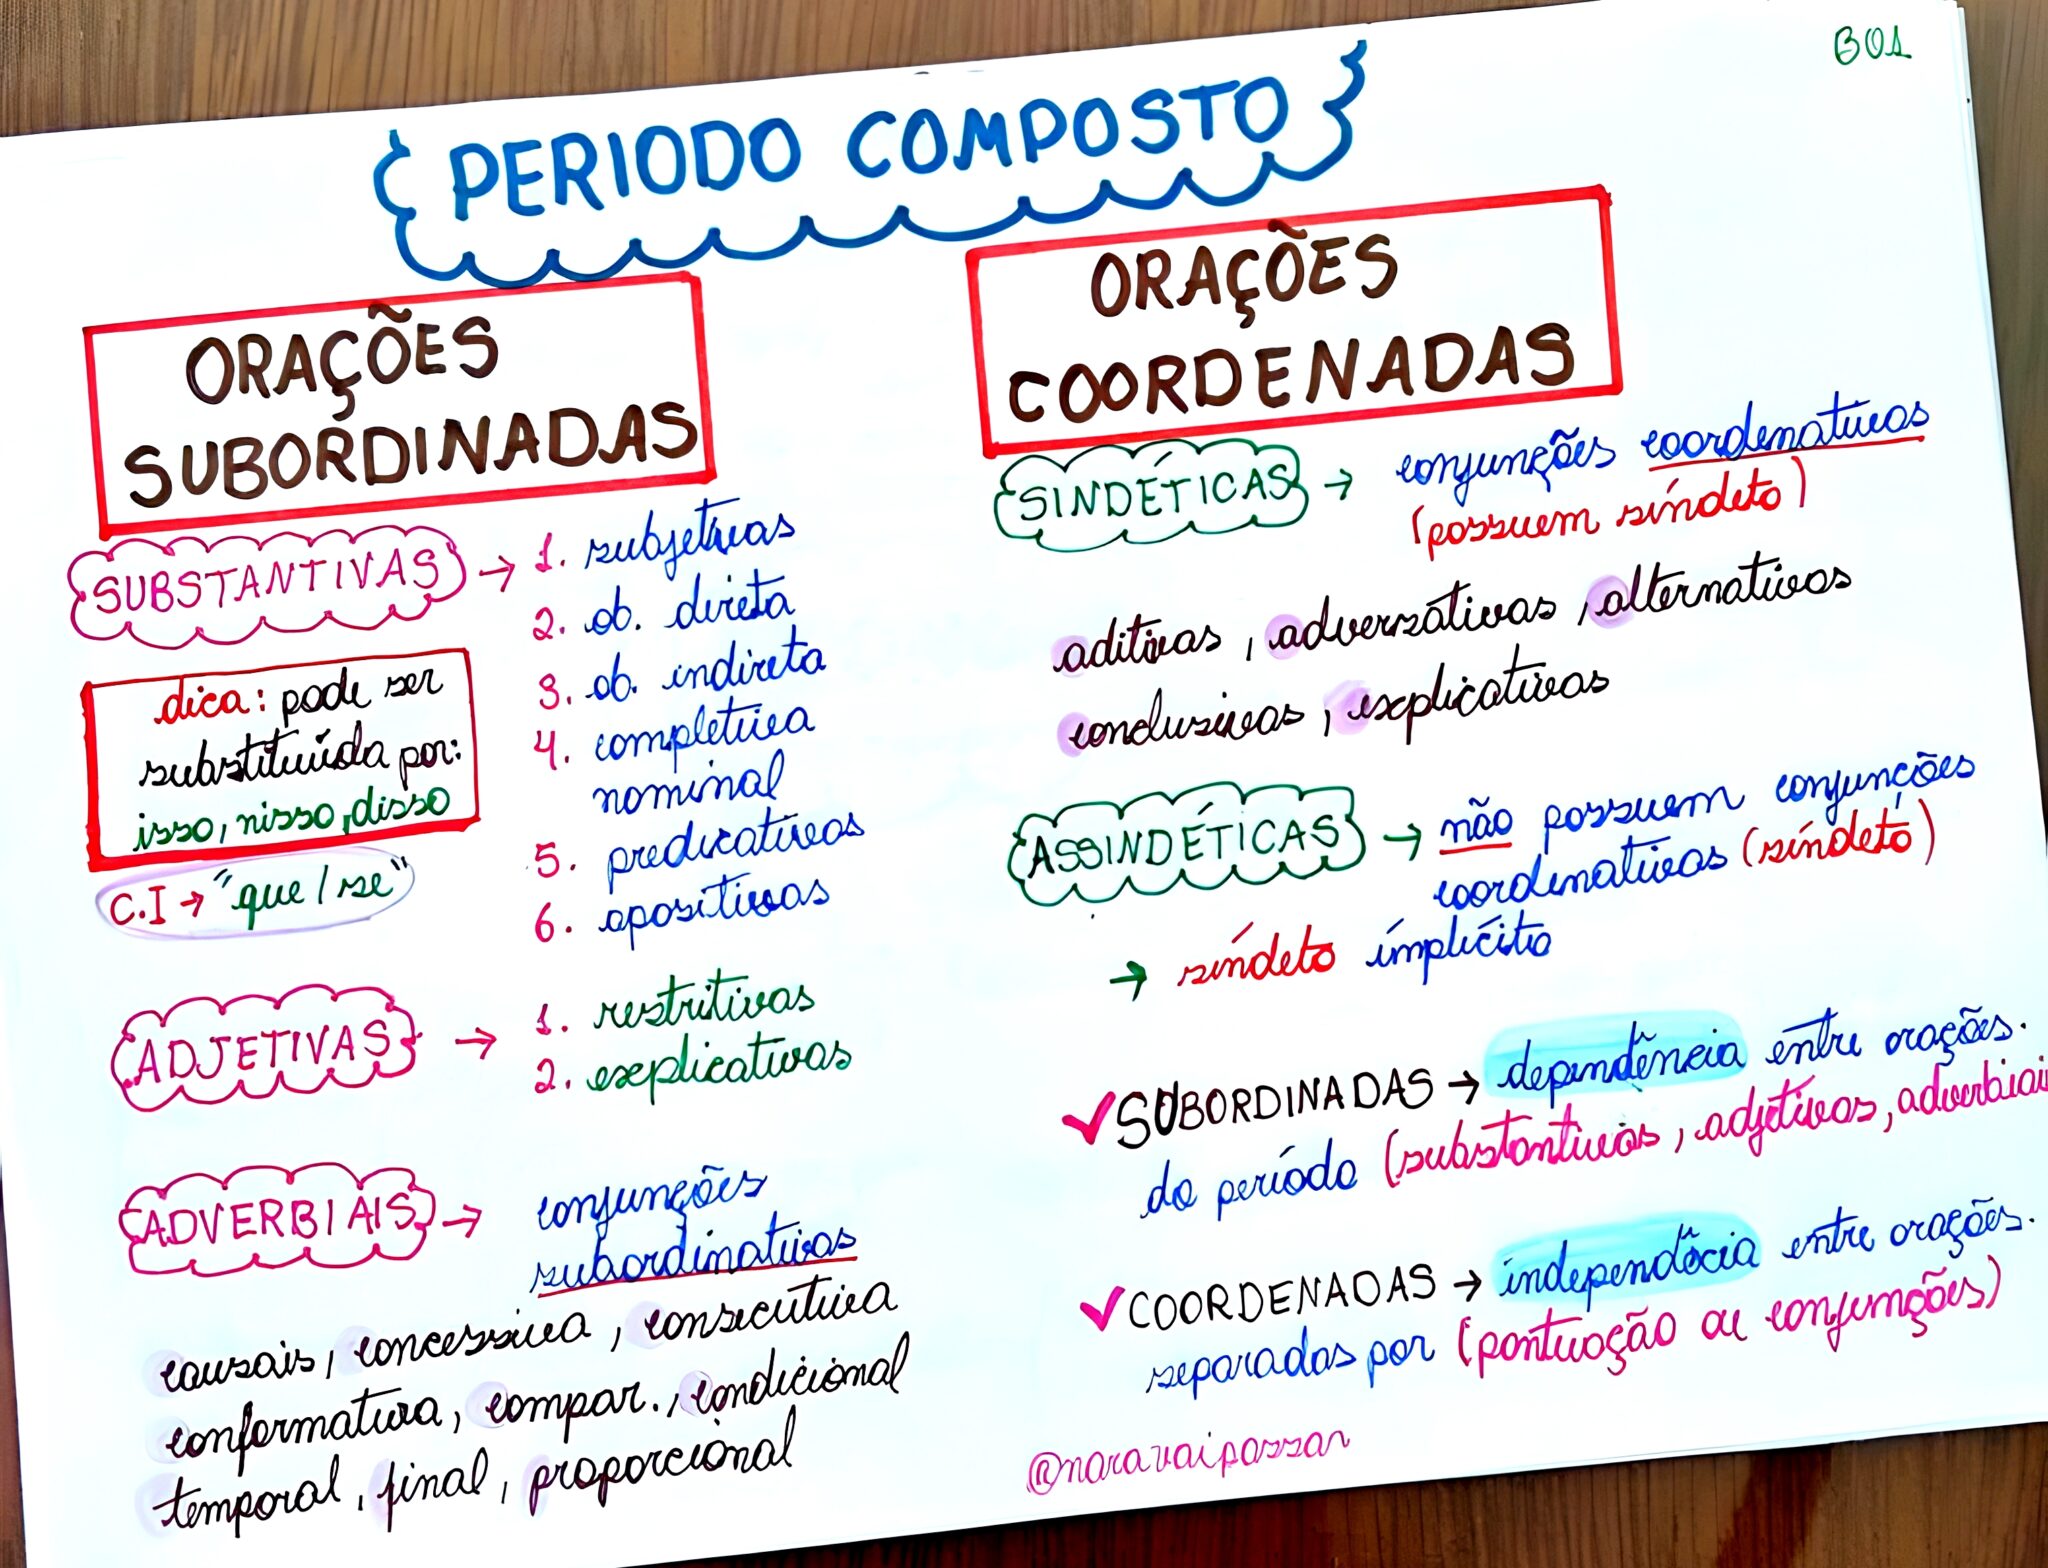 B01
PERIODO COMPOSTO
ORAÇÕES
SUBORDINADAS
SUBSTANTIVAS → 1. subjetivas
2. ob. direta
3. ob. indireta
4. completiva
nominal
5. predicativas
6. apositivas
dica: pode ser
substituída por:
isso, nisso, disso
C.I → "que / se"
ADJETIVAS → 1. restritivas
2. explicativas
ADVERBIAIS → conjunções
subordinativas
causais, concessiva, consecutiva
conformativa, compar., condicional
temporal, final, proporcional
ORAÇÕES
COORDENADAS
SINDÉTICAS → conjunções coordenativas
(possuem síndeto)
aditivas, adversativas, alternativas
conclusivas, explicativas
ASSINDÉTICAS → não possuem conjunções
coordenativas (síndeto)
→ síndeto implícito
✓ SUBORDINADAS → dependência entre orações.
do período (substantivas, adjetivas, adverbiai
✓ COORDENADAS → independêcia entre orações.
separadas por (pontuação ou conjunções)
@naravaipassar